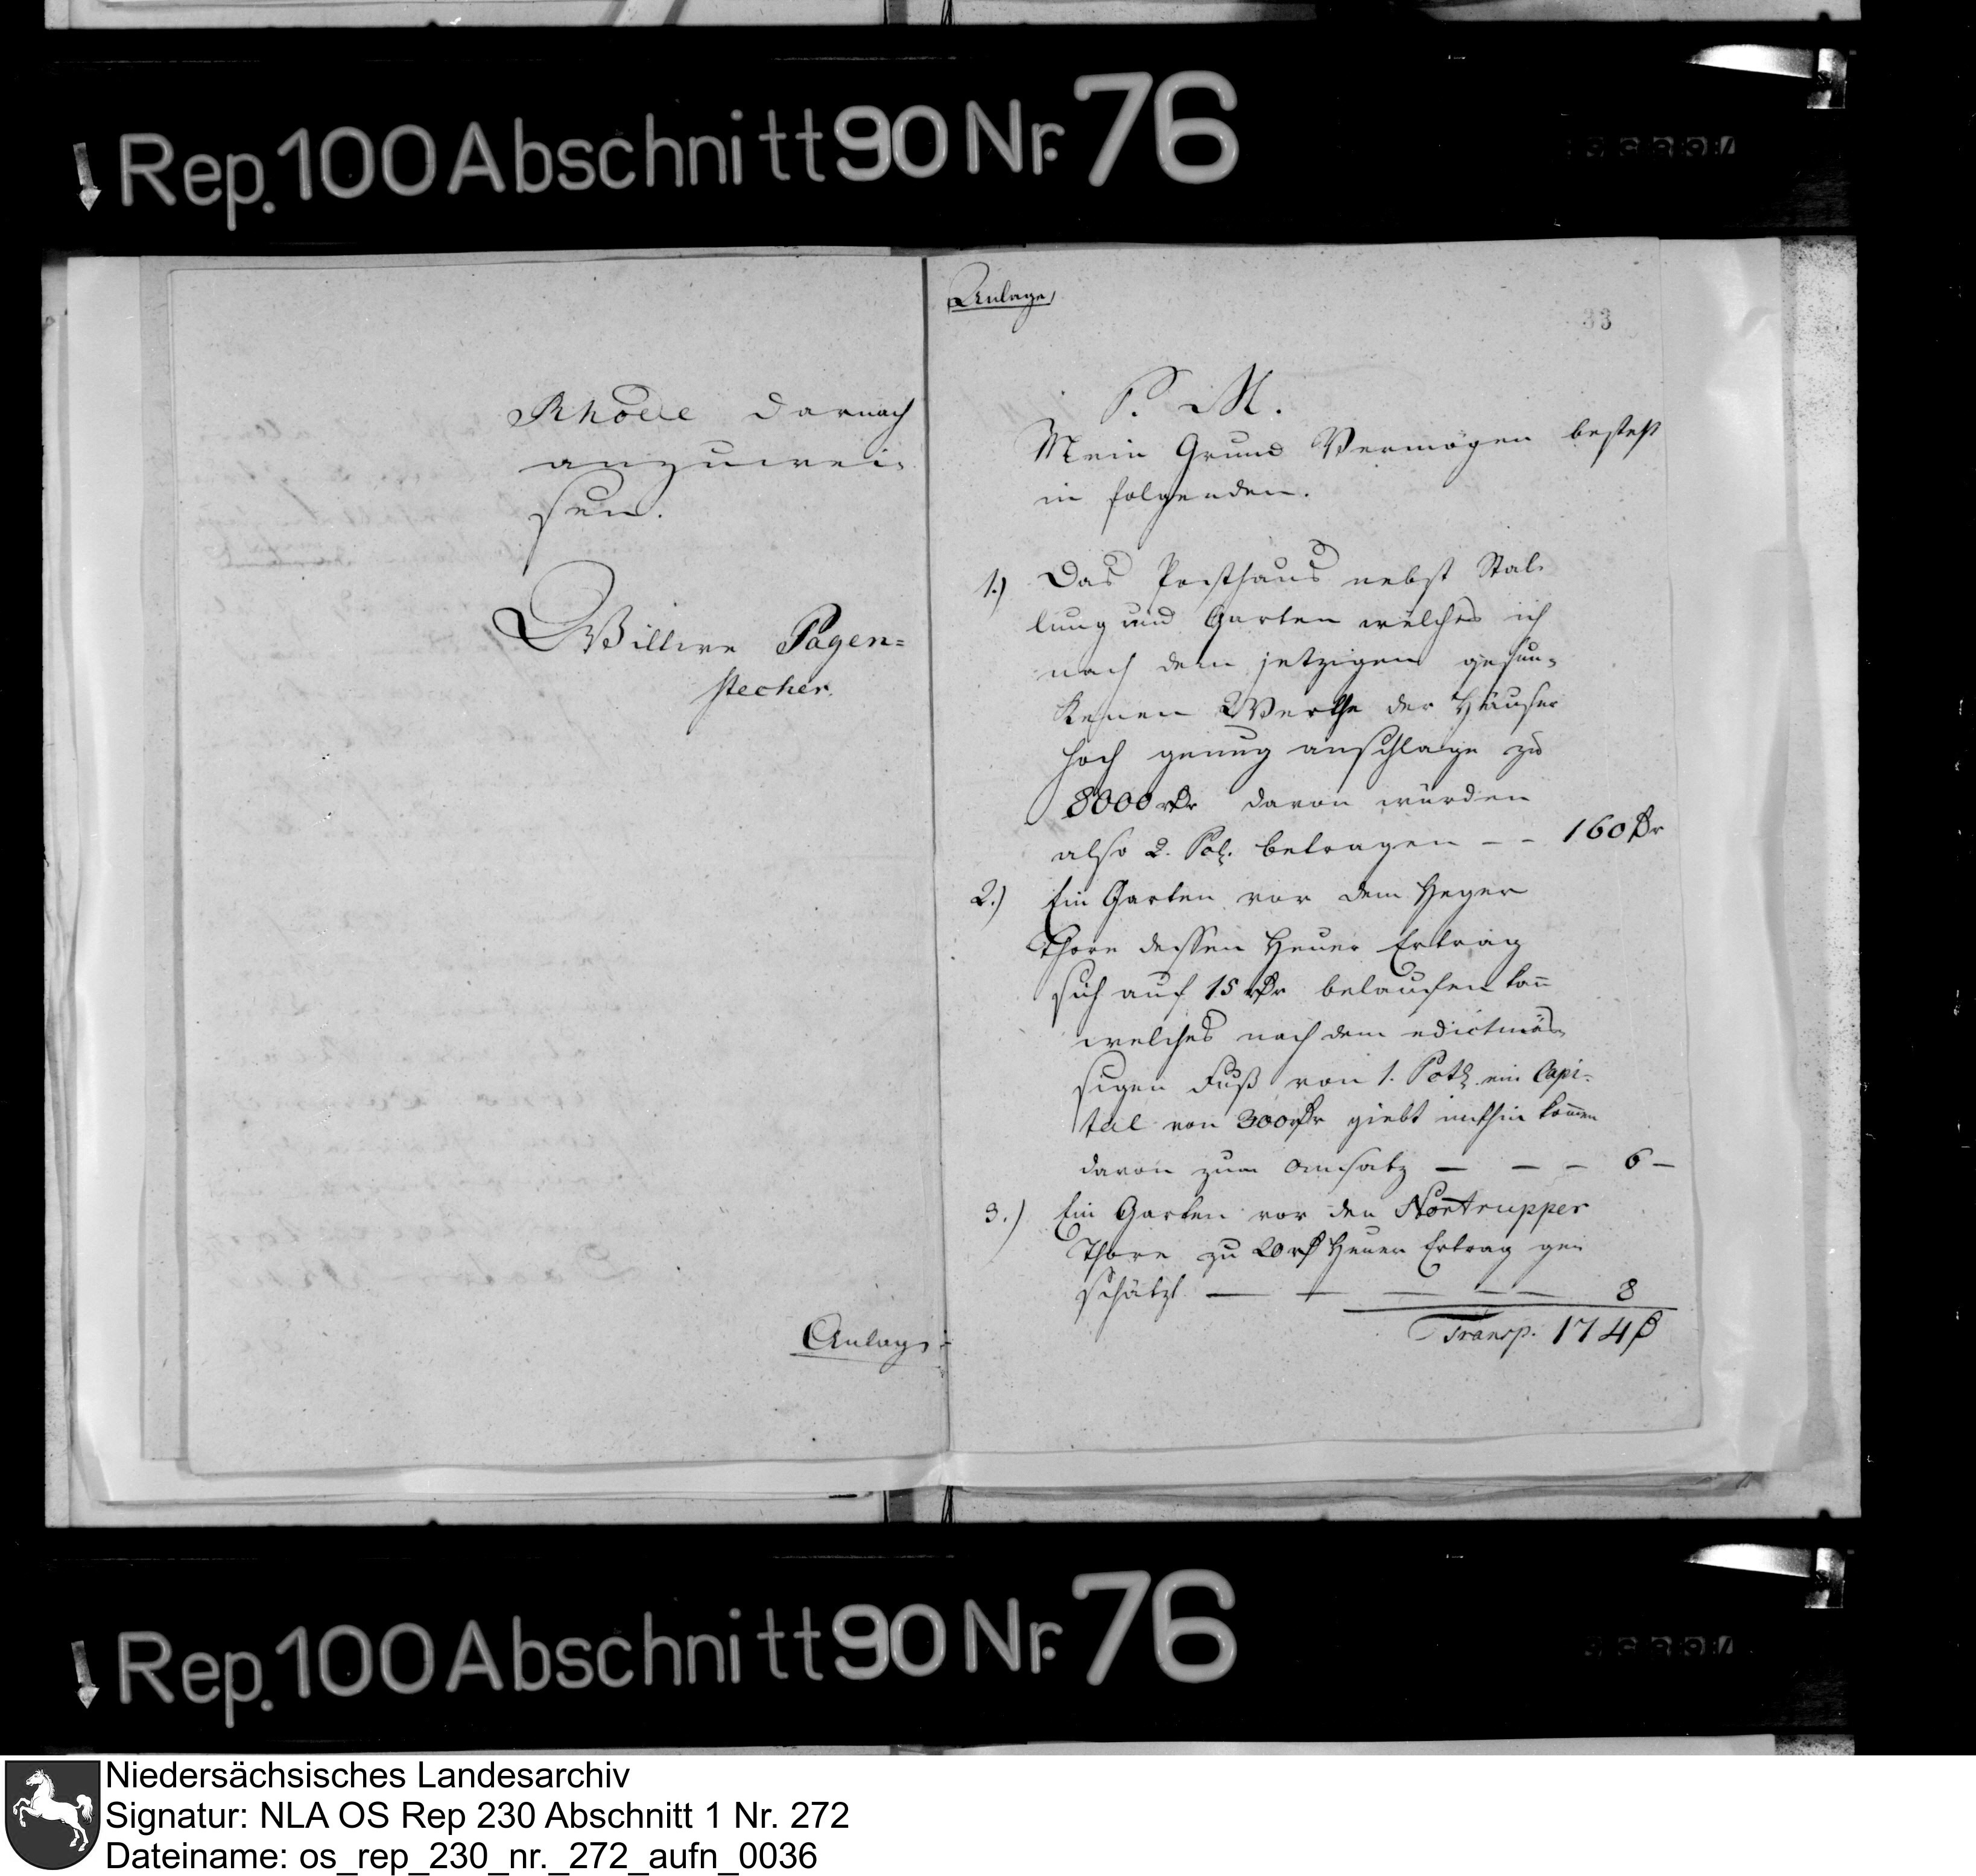 Rep. 100 Abschnitt 90 Nr. 76
Rhode darnach
anzuwei-
sen.
Wittwe Pagen=
stecher.
Anlage
Anlage
33
P. M.
Mein Grund Vermögen besteht
in folgenden.
1.) Das Posthaus nebst Stal-
lung und Garten welches ich
nach dem jetzigen gesun-
kenen Werthe der Häuser
hoch genug anschlage zu
8000 rthr davon würden
also 2. betragen – – 160 thr
2.) Ein Garten vor dem Heger
Thore dessen Heuer Ertrag
sich auf 15 rthr belaufen kann
welches nach dem edictmäs-
sigen Fuß von 1. ein Capi-
tal von 300 rthr giebt mithin kommen
davon zum Ansatz – – – 6 –
3.) Ein Garten vor den Nortrupper
Thore zu 20 rt Heuer Ertrag ge-
schätzt – – – – – 8
Transp. 174
Rep. 100 Abschnitt 90 Nr. 76
Niedersächsisches Landesarchiv
Signatur: NLA OS Rep 230 Abschnitt 1 Nr. 272
Dateiname: os_rep_230_nr._272_aufn_0036